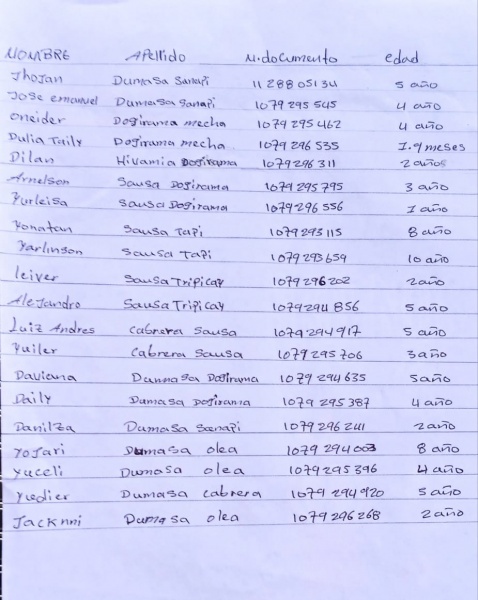 NOMBRE Apellido N.documento edad
Jhojan Dumasa Sanapi 1128805134 5 año
Jose emanuel Dumasa Sanapi 1079295545 4 año
Oneider Dogirama mecha 1079295462 4 año
Dulia Taily Dogirama mecha 1079296535 1.9 meses
Dilan Hivamia Dogirama 1079296311 2 años
Arnelson Sausa Dogirama 1079295795 3 año
Yurleisa Sausa Dogirama 1079296556 1 año
Yonatan Sausa Tapi 1079293115 8 año
Yarlinson Sausa Tapi 1079293659 10 año
leiver Sausa Tripicay 1079296202 2 año
Alejandro Sausa Tripicay 1079294856 5 año
Luiz Andres Cabrera Sausa 1079294917 5 año
Yuiler Cabrera Sausa 1079295706 3 año
Daviana Dumasa Dogirama 1079294635 5 año
Daily Dumasa Dogirama 1079295387 4 año
Danilza Dumasa Sanapi 1079296241 2 año
Yojari Dumasa olea 1079294003 8 año
Yuceli Dumasa olea 1079295396 4 año
Yuedier Dumasa Cabrera 1079294920 5 año
Jacknni Dumasa olea 1079296268 2 año